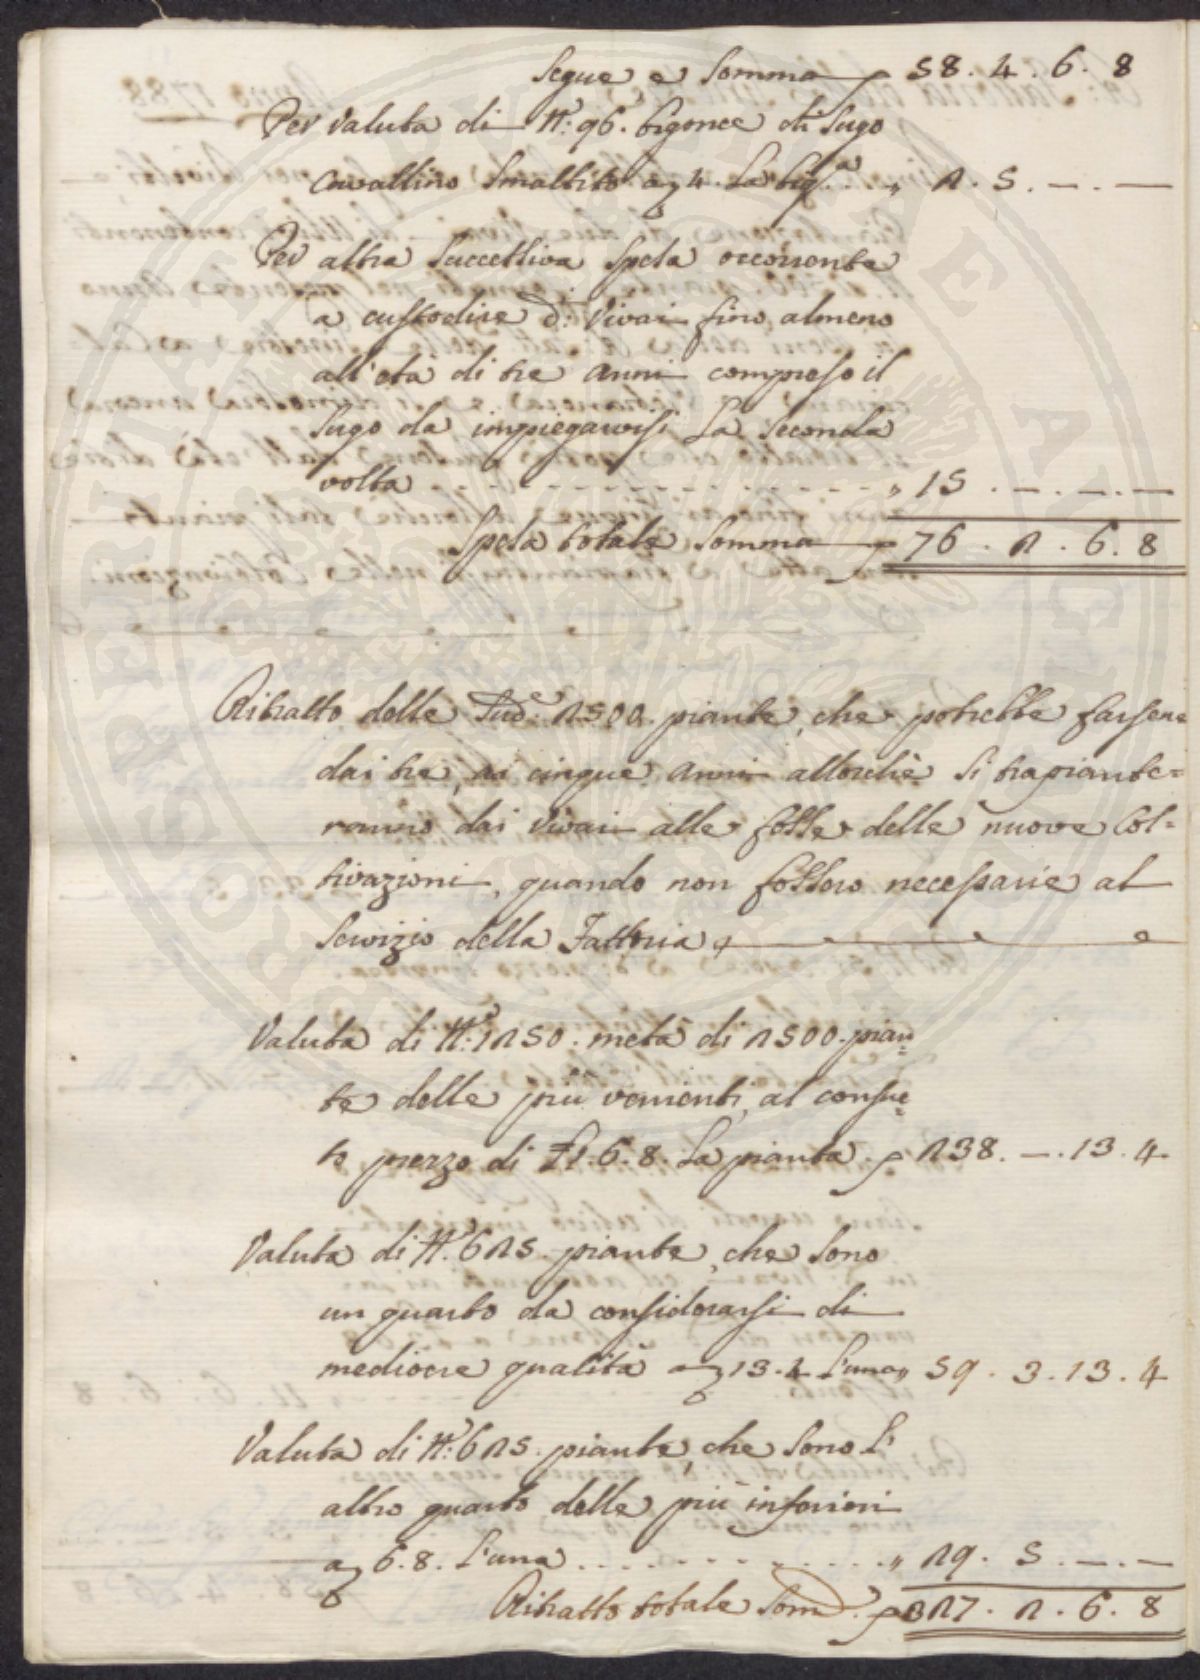 Segue e Somma p 58. 4. 6. 8
Per valuta di N.° 96. bigonce di Sugo
cavallino Smaltito a § 4. La big.ª „ 2. 5. — . —
Per altra Successiva Spesa occorrente
a custodire d.i Vivai fino almeno
all'età di tre anni compreso il
Sugo da impiegarvisi La Seconda
volta - - - - - - - - „ 15 . — . — . —
Spesa totale Somma p 76. 2. 6. 8
Ritratto delle Sud.e 2500. piante, che potrebbe farsene
dai tre, ai cinque anni allorchè Si trapiante=
ranno dai Vivai alle fosse delle nuove Col=
tivazioni, quando non fossero necessarie al
Servizio della Fattoria
Valuta di N.° 1250. metà di 2500. pian=
te delle più venienti, al consue=
to prezzo di £1. 6. 8. La pianta. p 238. — . 13. 4
Valuta di N.° 625. piante, che Sono
un quarto da considerarsi di
mediocre qualità a § 13. 4 L'una „ 59. 3. 13. 4
Valuta di N.° 625. piante, che Sono L'
altro quarto delle più inferiori
a § 6. 8. L'una . . . . - - - - . . . . „ 29. 5. — . —
Ritratto totale Som.ª p 327. 2. 6. 8
PROSPERITATI PVBLICAE AVGENDAE